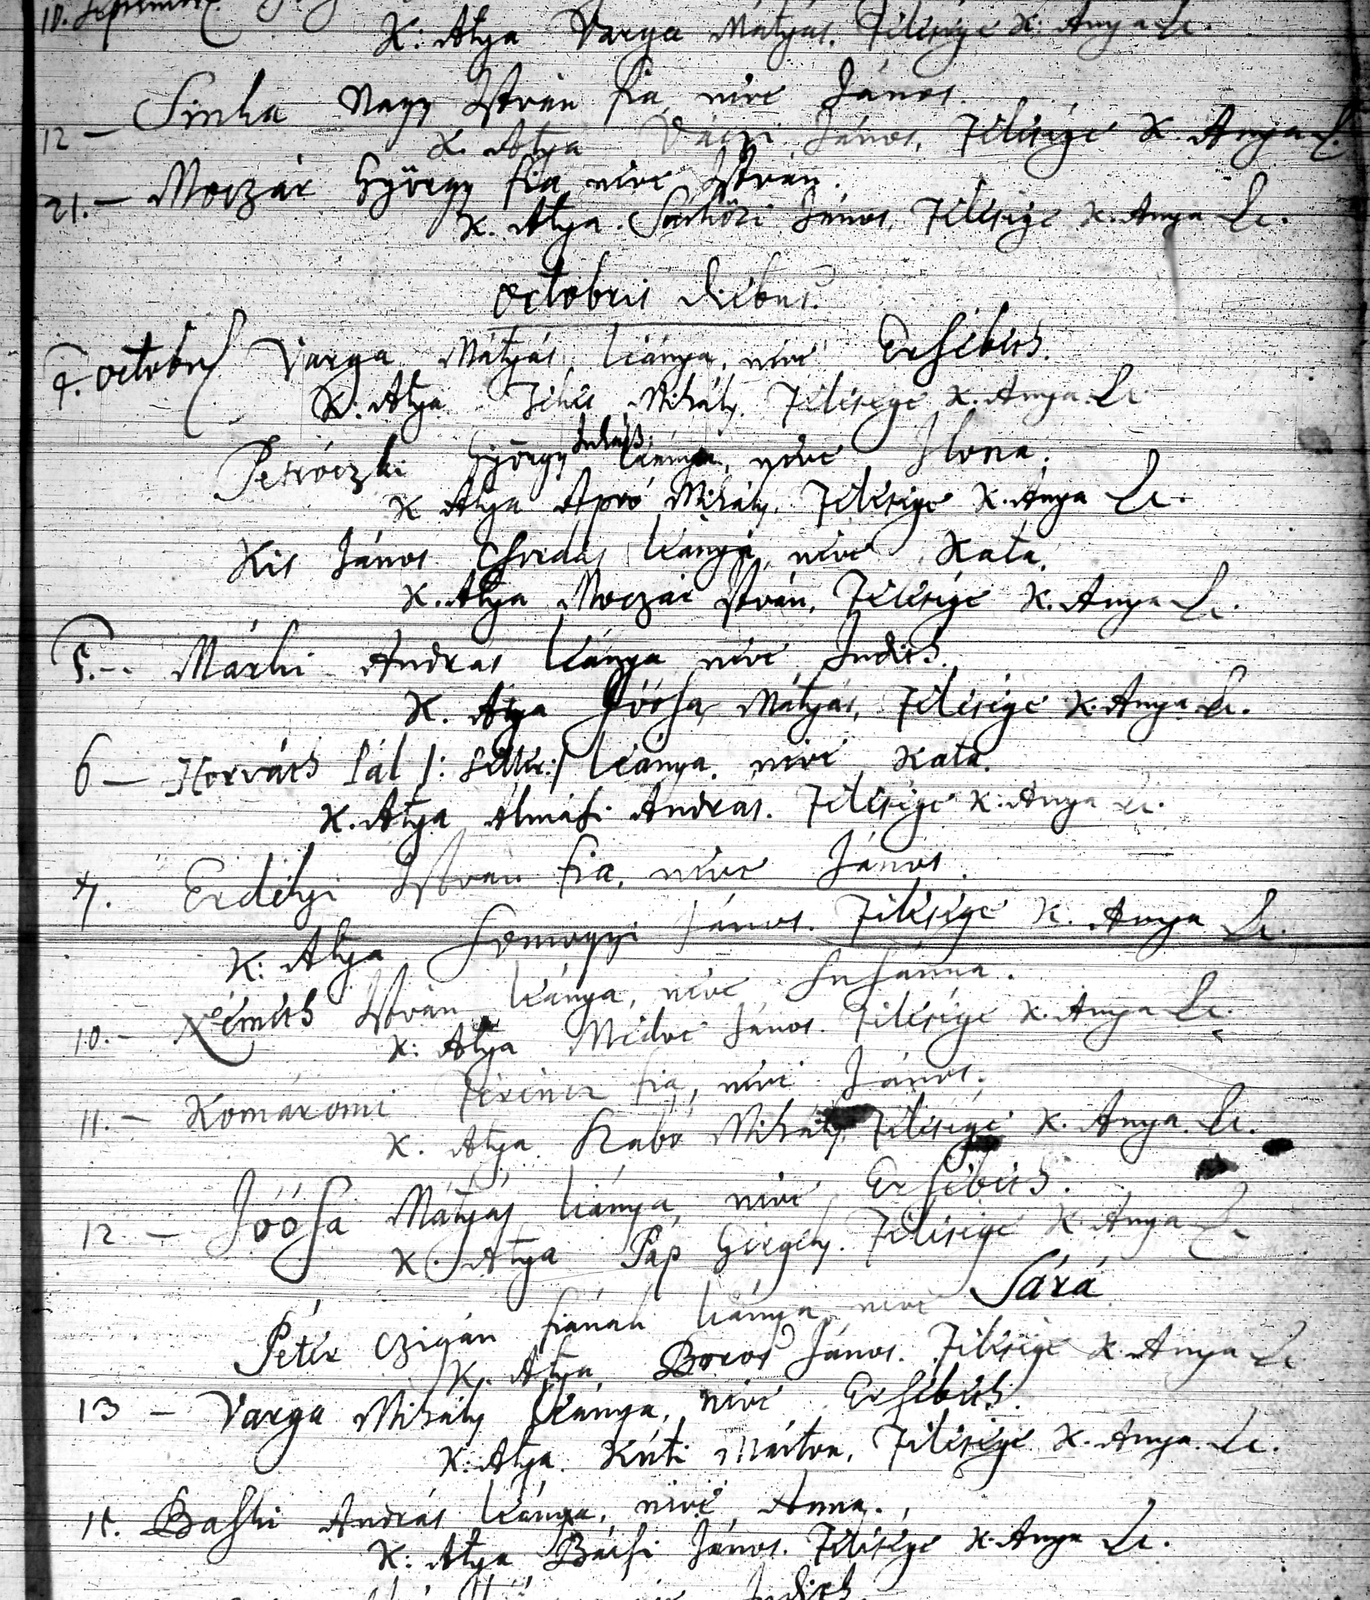 10. Septembr
K: Atya Varga Mátyás, Felesége K: Anya Lt.
12 — Sinka Nagy István fia, neve János.
K. Atya Váczi János, Felesége K. Anya L.
21. — Moczár György fia, neve István.
K. Atya. Sárközi János, Felesége K. Anya Lt.
Octobris diebus.
4. octobr Varga Mátyás leánya, neve Ersébeth.
K. Atya Fehér Mihály, Felesége K. Anya Lt
Petróczki György Juhász leánya, neve Ilona.
K Atya Apró Mihály, Felesége K. Anya Lt.
Kis János leánya, neve Kata.
K. Atya Moczár István, Felesége K. Anya Lt.
5. — Márki Andras leánya neve Judith.
K. Atya Jóósa Mátyás, Felesége K. Anya Lt.
6 — Horváth Pál leánya. neve Kata.
K. Atya Almási Andras. Felesége K. Anya Lt.
7. Erdélyi István fia, neve János.
K: Atya Somogyi János. Felesége K. Anya Lt.
10. — Németh István leánya, neve Susánna.
K: Atya Medve János. Felesége K. Anya Lt.
11. — Komáromi Ferencz fia, neve János.
K. Atya Szabó Mihály Felesége K. Anya. Lt.
12. — Jóósa Mátyás leánya, neve Ersébeth.
K. Atya Pap Gergely. Felesége K. Anya Lt
Péter Czigán fiának leánya neve Sára
K. Atya, Boros János. Felesége K. Anya Lt
13 — Varga Mihály leánya, neve Ersébeth.
K. Atya. Kúti Márton, Felesége K. Anya. Lt.
15. Baski András leánya, neve Anna.
K. Atya Bácsi János. Felesége K. Anya Lt.
Judith